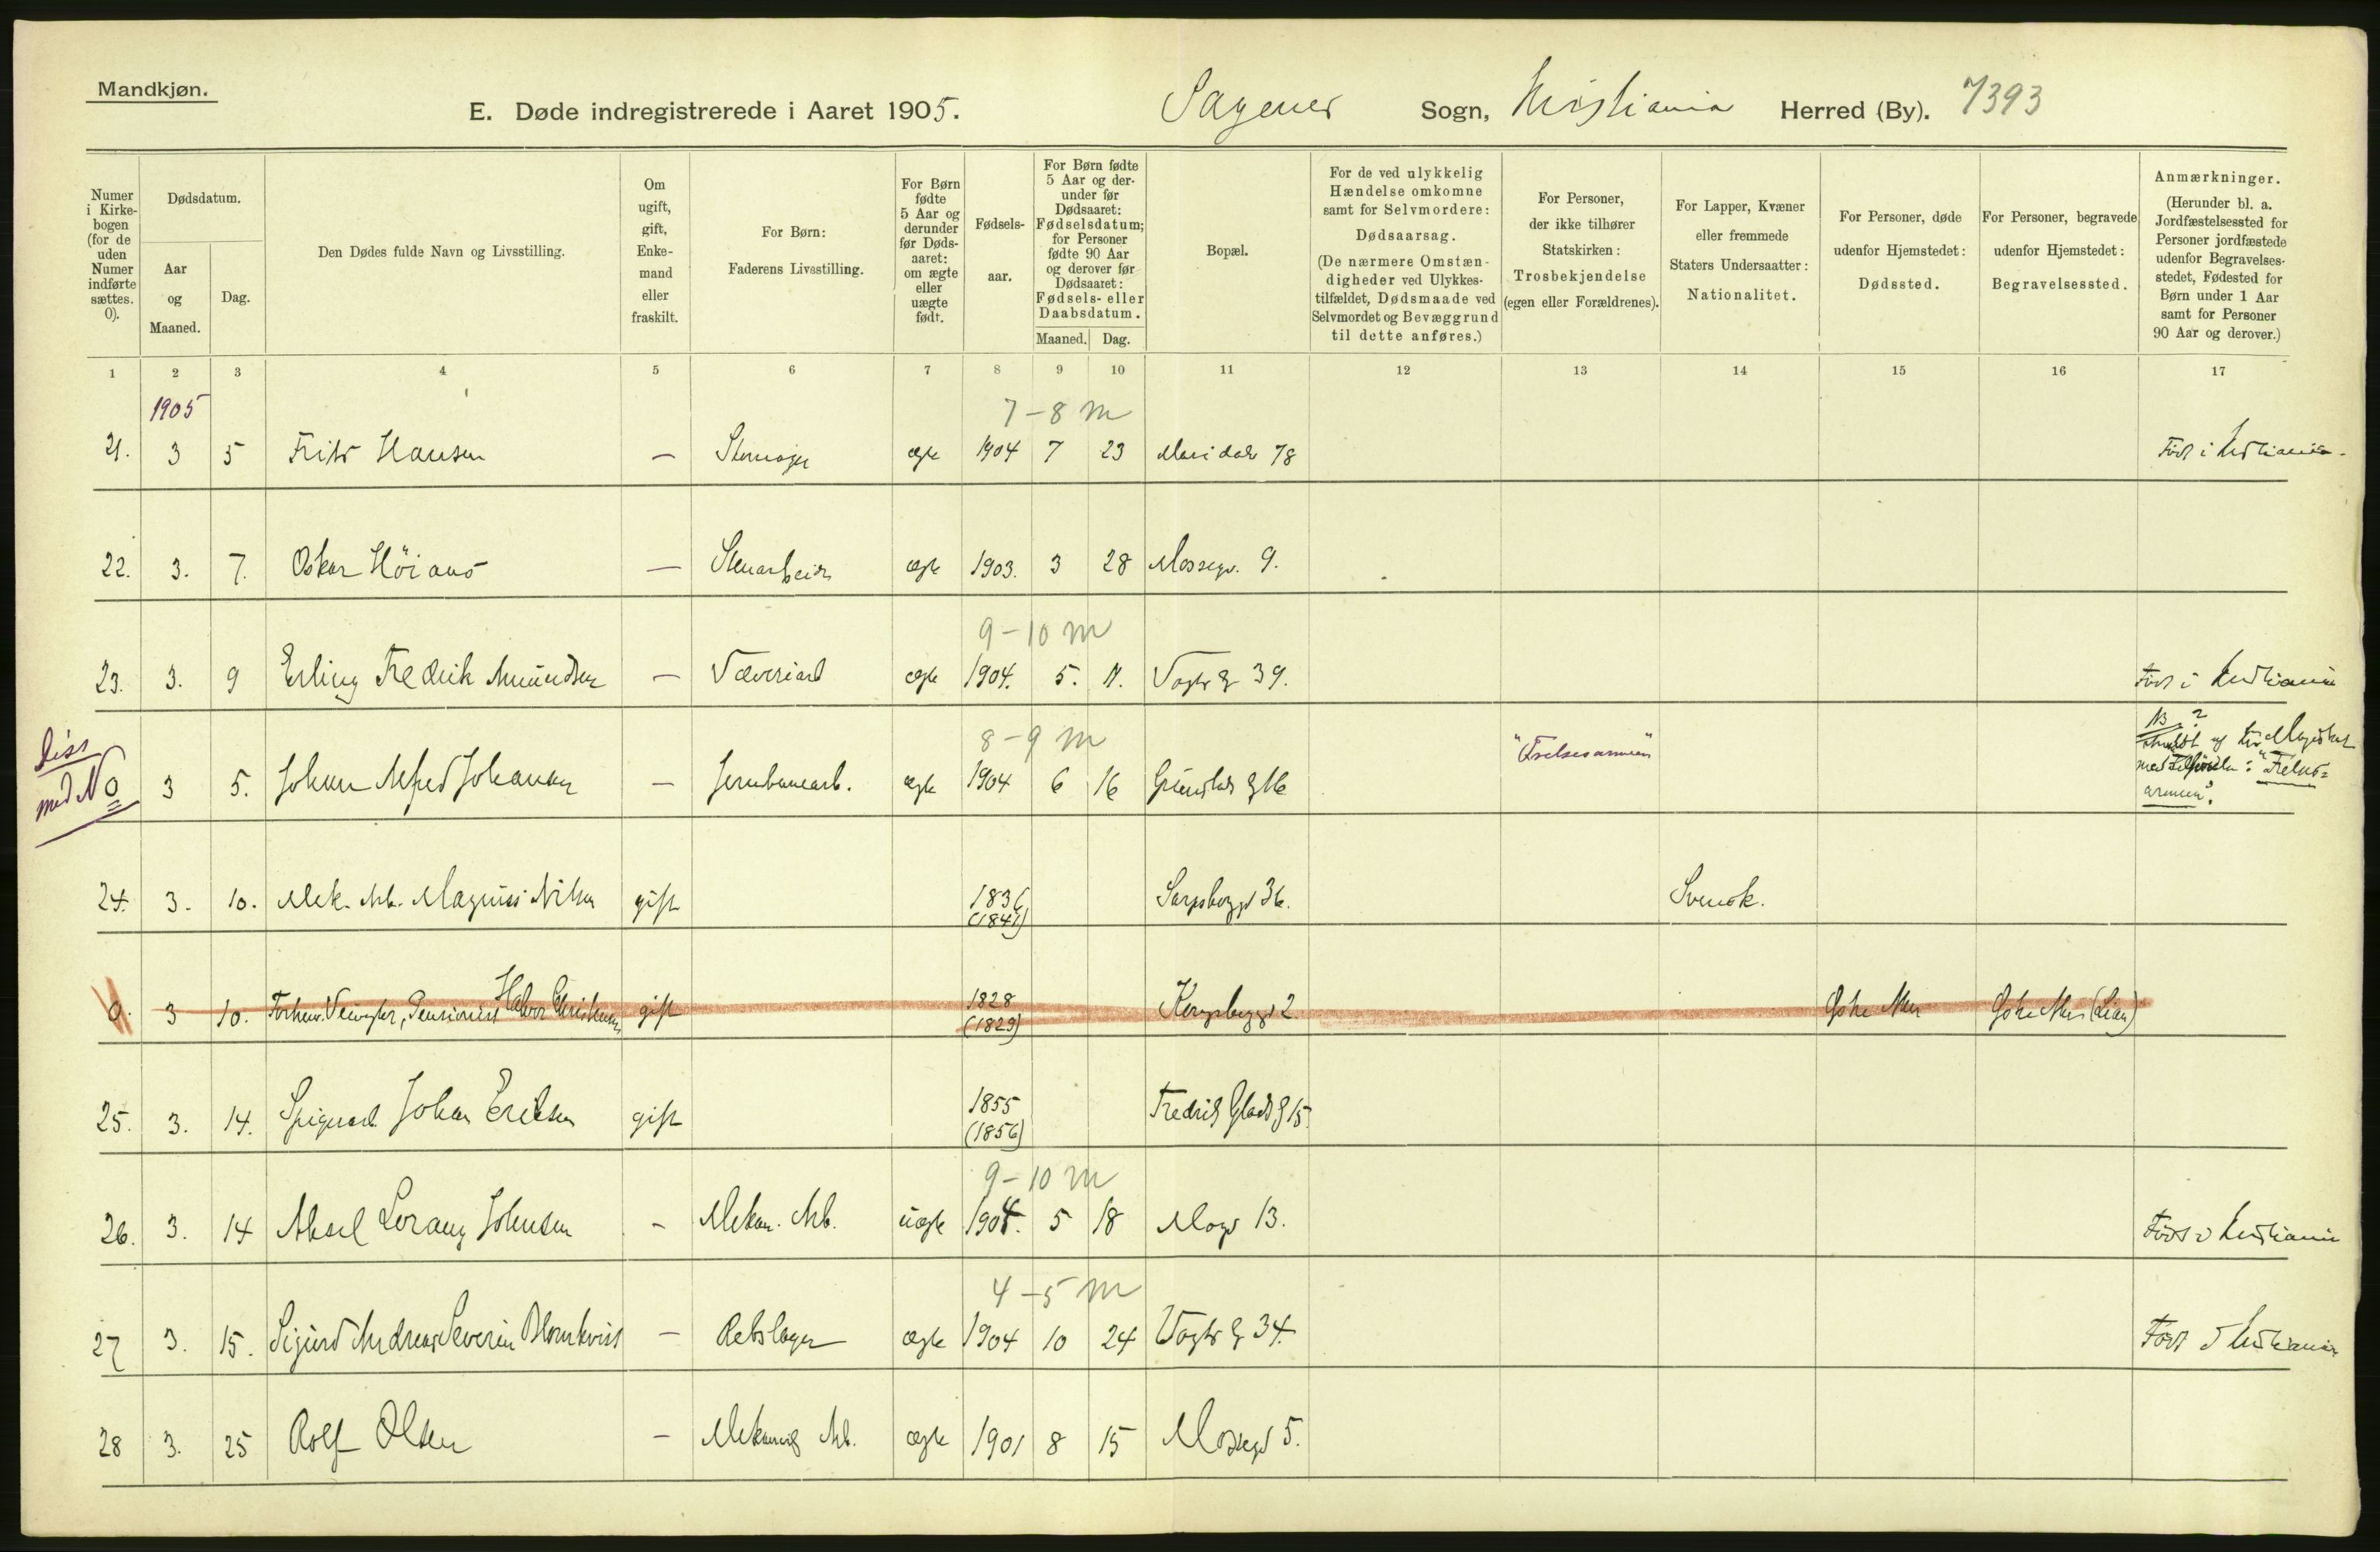 Mandkjøn.
E. Døde indregistrerede i Aaret 1905. Sagenes Sogn, Kristiania Herred (By). 7393
Numer i Kirkebogen (for de uden Numer indførte sættes. 0).
Dødsdatum.
Aar og Maaned.
Dag.
Den Dødes fulde Navn og Livsstilling.
Om ugift, gift, Enkemand eller fraskilt.
For Børn: Faderens Livsstilling.
For Børn fødte 5 Aar og derunder før Dødsaaret: om ægte eller uægte født.
Fødselsaar.
For Børn fødte 5 Aar og derunder før Dødsaaret: Fødselsdatum; for Personer fødte 90 Aar og derover før Dødsaaret: Fødsels- eller Daabsdatum.
Maaned. Dag.
Bopæl.
For de ved ulykkelig Hændelse omkomne samt for Selvmordere: Dødsaarsag. (De nærmere Omstændigheder ved Ulykkestilfældet, Dødsmaade ved Selvmordet og Bevæggrund til dette anføres.)
For Personer, der ikke tilhører Statskirken: Trosbekjendelse (egen eller Forældrenes).
For Lapper, Kvæner eller fremmede Staters Undersaatter: Nationalitet.
For Personer, døde udenfor Hjemstedet: Dødssted.
For Personer, begravede udenfor Hjemstedet: Begravelsessted.
Anmærkninger. (Herunder bl. a. Jordfæstelsessted for Personer jordfæstede udenfor Begravelsesstedet, Fødested for Børn under 1 Aar samt for Personer 90 Aar og derover.)
1 2 3 4 5 6 7 8 9 10 11 12 13 14 15 16 17
1905
7-8 m
21. 3 5 Frits Hansen — ægte 1904 7 23 Maridals 78 Født i Kristiania.
22. 3. 7. Oskar Höiaas — Stenarbeider ægte 1903. 3 28 Mossegd. 9.
9-10 m
23. 3. 9 Erling Fredrik Amundsen — Væveriarb ægte 1904. 5. 11. Vogts g 39. Født i Kristiania
8-9 m
Diss
med No 0 3 5. Johan Alfred Johansen — Jernbanearb. ægte 1904 6 16 16 "Frelsesarmeen" NB. ? af Magistrat med Tilföielse: "Frelses=
armeen".
24. 3. 10. Mek. Arb. Magnus Nilsen gift 1836 (1841) Sarpsborggd 36. Svensk.
0. 3 10. Forhenv. Pensionist Halvor Christensen gift 1828 (1829) Kongsberggd 2 Østre Aker Østre Aker
25. 3. 14. Spigerarb Johan Eriksen gift 1855 (1856) Fredrik Glads g 15.
9-10 m
26. 3. 14 Aksel Lorang Johnsen - Mekan. Arb. uægte 1904. 5 18 13. Født i Kristiania
4-5 m
27 3. 15. Sigurd Andreas Severin Blomkvist — Rebslager ægte 1904 10 24 Vogts g 34. Født i Kristiania
28 3. 25 Rolf Olsen — Mekanisk Arb. ægte 1901 8 15 Mossegd 5.